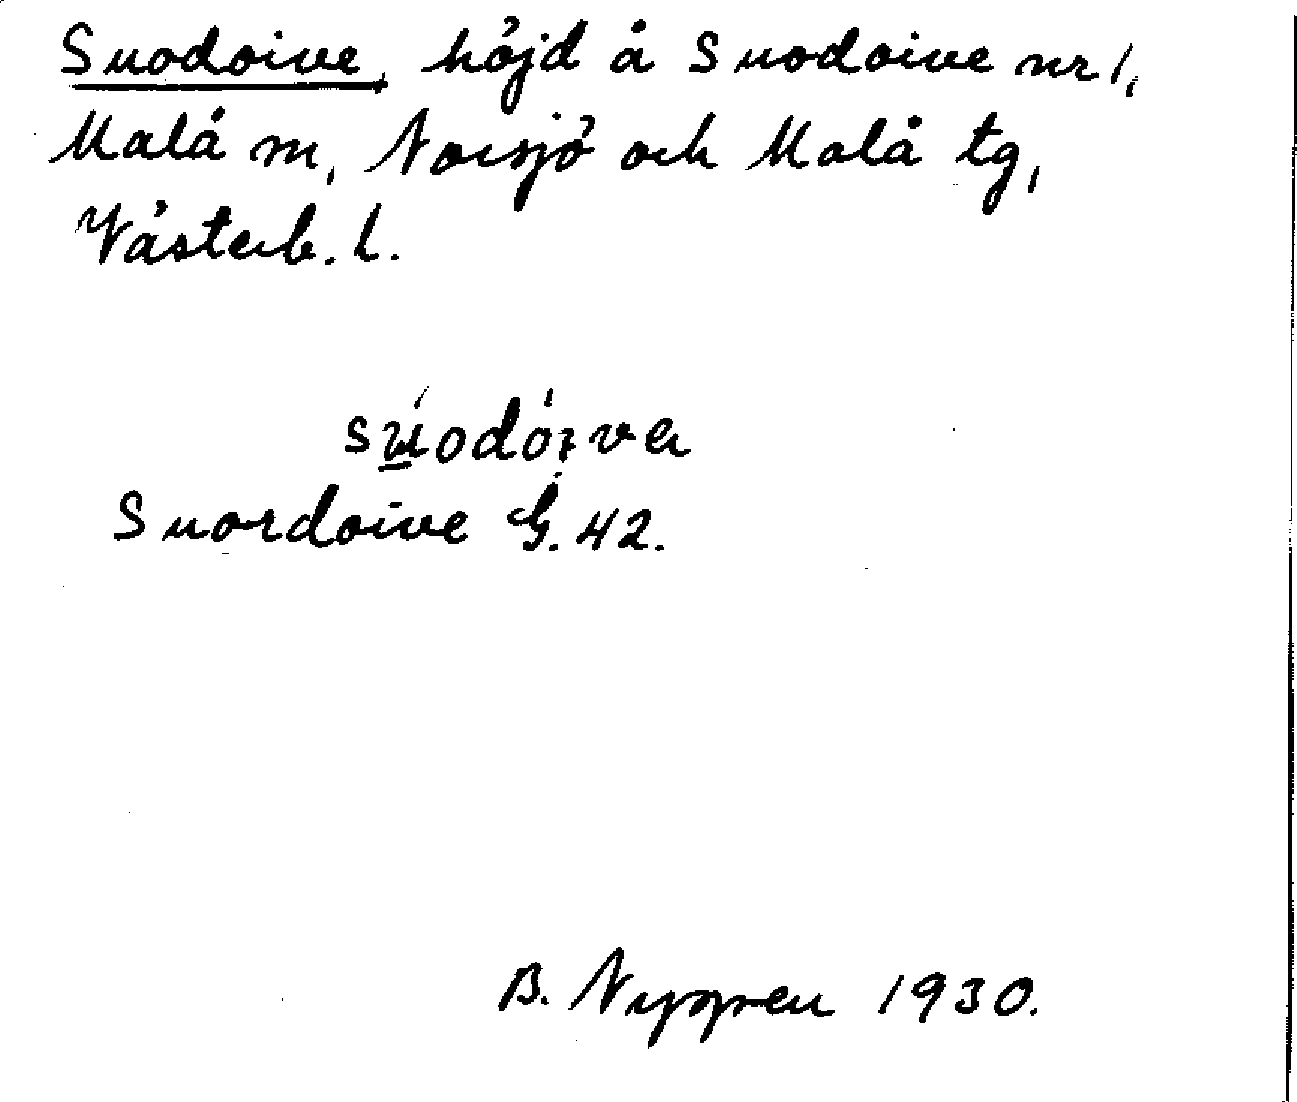 Suodoive, höjd å Suodoive nr 1,
Malå sn, Norsjö och Malå tg,
Västerb. l.
súodói̯va
Suordoive G. 42.
B. Nygren 1930.